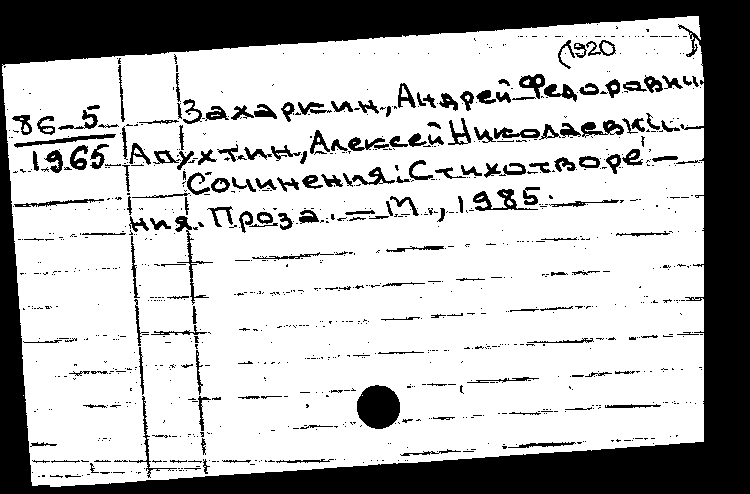 (1920      )
86-5
1965
Захаркин, Андрей Федорович.
Апухтин, Алексей Николаевич.
Сочинения: Стихотворе-
ния. Проза. — М., 1985.